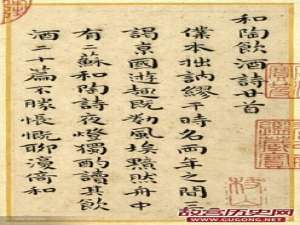 和陶飲酒詩廿首
僕本拙訥繆干時名兩年之間三
謁京國遊趣既勌風埃黯然舟中
有二蘇和陶詩夜燈獨酌讀其飲
酒二十篇不勝悵慨聊濡倚和
故宫历史网
www.gugong.net